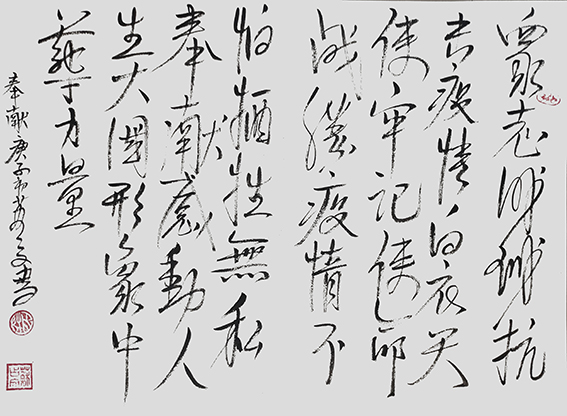 眾志成城抗
击疫情白衣天
使牢记使命
战勝疫情不
怕牺牲無私
奉献感動人
生大國形象中
華力量
奉献 庚子